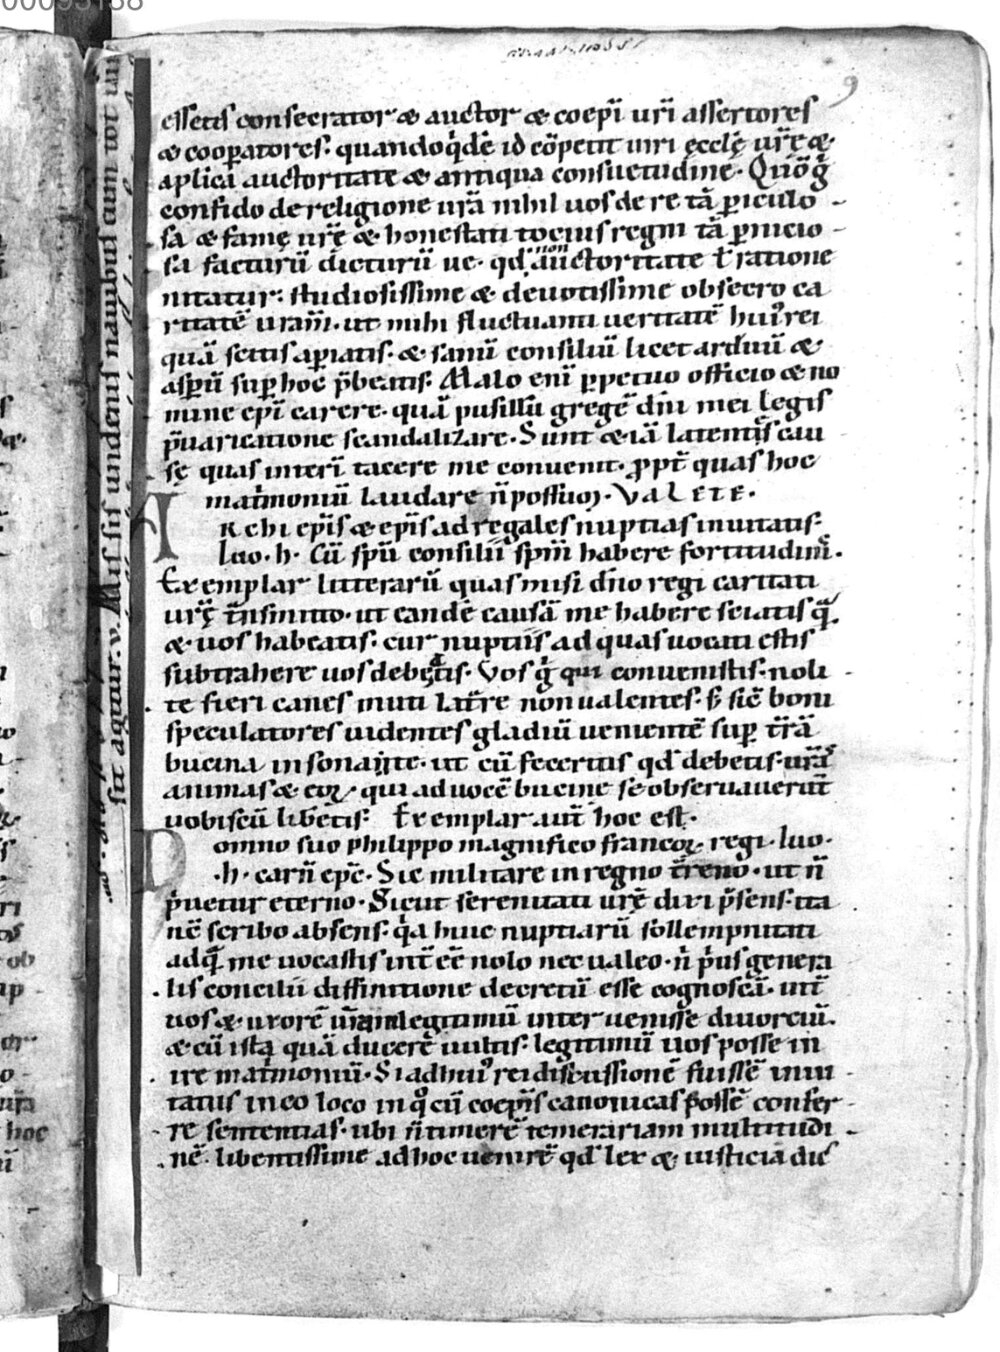 00093138
9
essetis consecrator & auctor & coepi̅ uri̅ assertores
& cooꝑatores. quandoq̍de̅ id co̅petit uiri eccle̜ ur̅e̜ &
aplica̅ auctoritate & antiqua consuetudine. Quo̅ g̍
confido de religione ur̅a̅ nihil uos de re ta̅ ꝑiculo
sa & fame̜ ur̅e̜ & honestati tocius regni ta̅ ꝑnicio
sa facturu̅ dicturu̅ ue. qd̅ non auctoritate ł ratione
nitatur. studiosissime & deuotissime obsecro ca
ritate̅ ura̅m. ut mihi fluctuanti ueritate̅ hui᷒ rei
qua̅ scitis aꝑiatis. & sanu̅ consiliu̅ licet arduu̅ &
asꝑu̅ suꝑ hoc p̅beatis. Malo eni̅ ꝑpetuo officio & no
mine epi̅ carere. qua̅ pusillu̅ grege̅ dn̅i mei legis
p̅uaricatione scandalizare. Sunt & ia̅ latentes cau
se̜ quas interi̅ tacere me conuenit. ꝓpt̅ quas hoc
mat̍moniu̅ laudare n̅ possum. VALETE.
A RCHI epi̅s & epi̅s ad regales nuptias inuitatis.
Iuo. h. Cu̅ spu̅ consilii spm̅ habere fortitudinis.
Exemplar litteraru̅ quas misi dn̅o regi caritati
ur̅e̜ t̅nsmitto. ut eande̅ causa̅ me habere sciatis q̅
& uos habeatis. cur nuptiis ad quas uocati estis
subtrahere uos debeatis. Vos g̍ qui conuenistis. noli
te fieri canes muti lat̅re non ualentes. s; sic̅ boni
speculatores uidentes gladiu̅ ueniente̅ suꝑ t̅ra̅
bucina insonate. ut cu̅ feceritis qd̅ debetis. ura̅s
animas & eoꝝ qui ad uoce̅ bucine se obseruauerint
uobiscu̅ lib̅etis. Exemplar aut̅ hoc est.
D omno suo philippo magnifico francoꝝ regi. Iuo.
.h. carn̅ epc̅. Sic militare in regno t̅reno. ut n̅
p̍uetur eterno. Sicut serenitati ur̅e̜ dixi p̅sens. ita
ne̅ scribo absens. q̍a huic nuptiaru̅ sollempnitati
ad qua̅ me uocastis int̅ee̅ nolo nec ualeo. n̍ p̍us genera
lis concilii diffinitione decretu̅ esse cognosca̅. int̅
uos & uxore̅ ura̅m legitimu̅ interuenisse diuorciu̅.
& cu̅ ista̅ qua̅ ducere̅ uultis. legitimu̅ uos posse in
ire mat̍moniu̅. Si ad hui᷒ rei discussione̅ fuisse̅ inui
tatus in eo loco in q̊ cu̅ coepi̅s canonicas posse̅ confer
re sententias. ubi n̅ timere̅ temerariam multitudi
ne̅. libentissime ad hoc uenire̅ qd̅ lex & iusticia dic